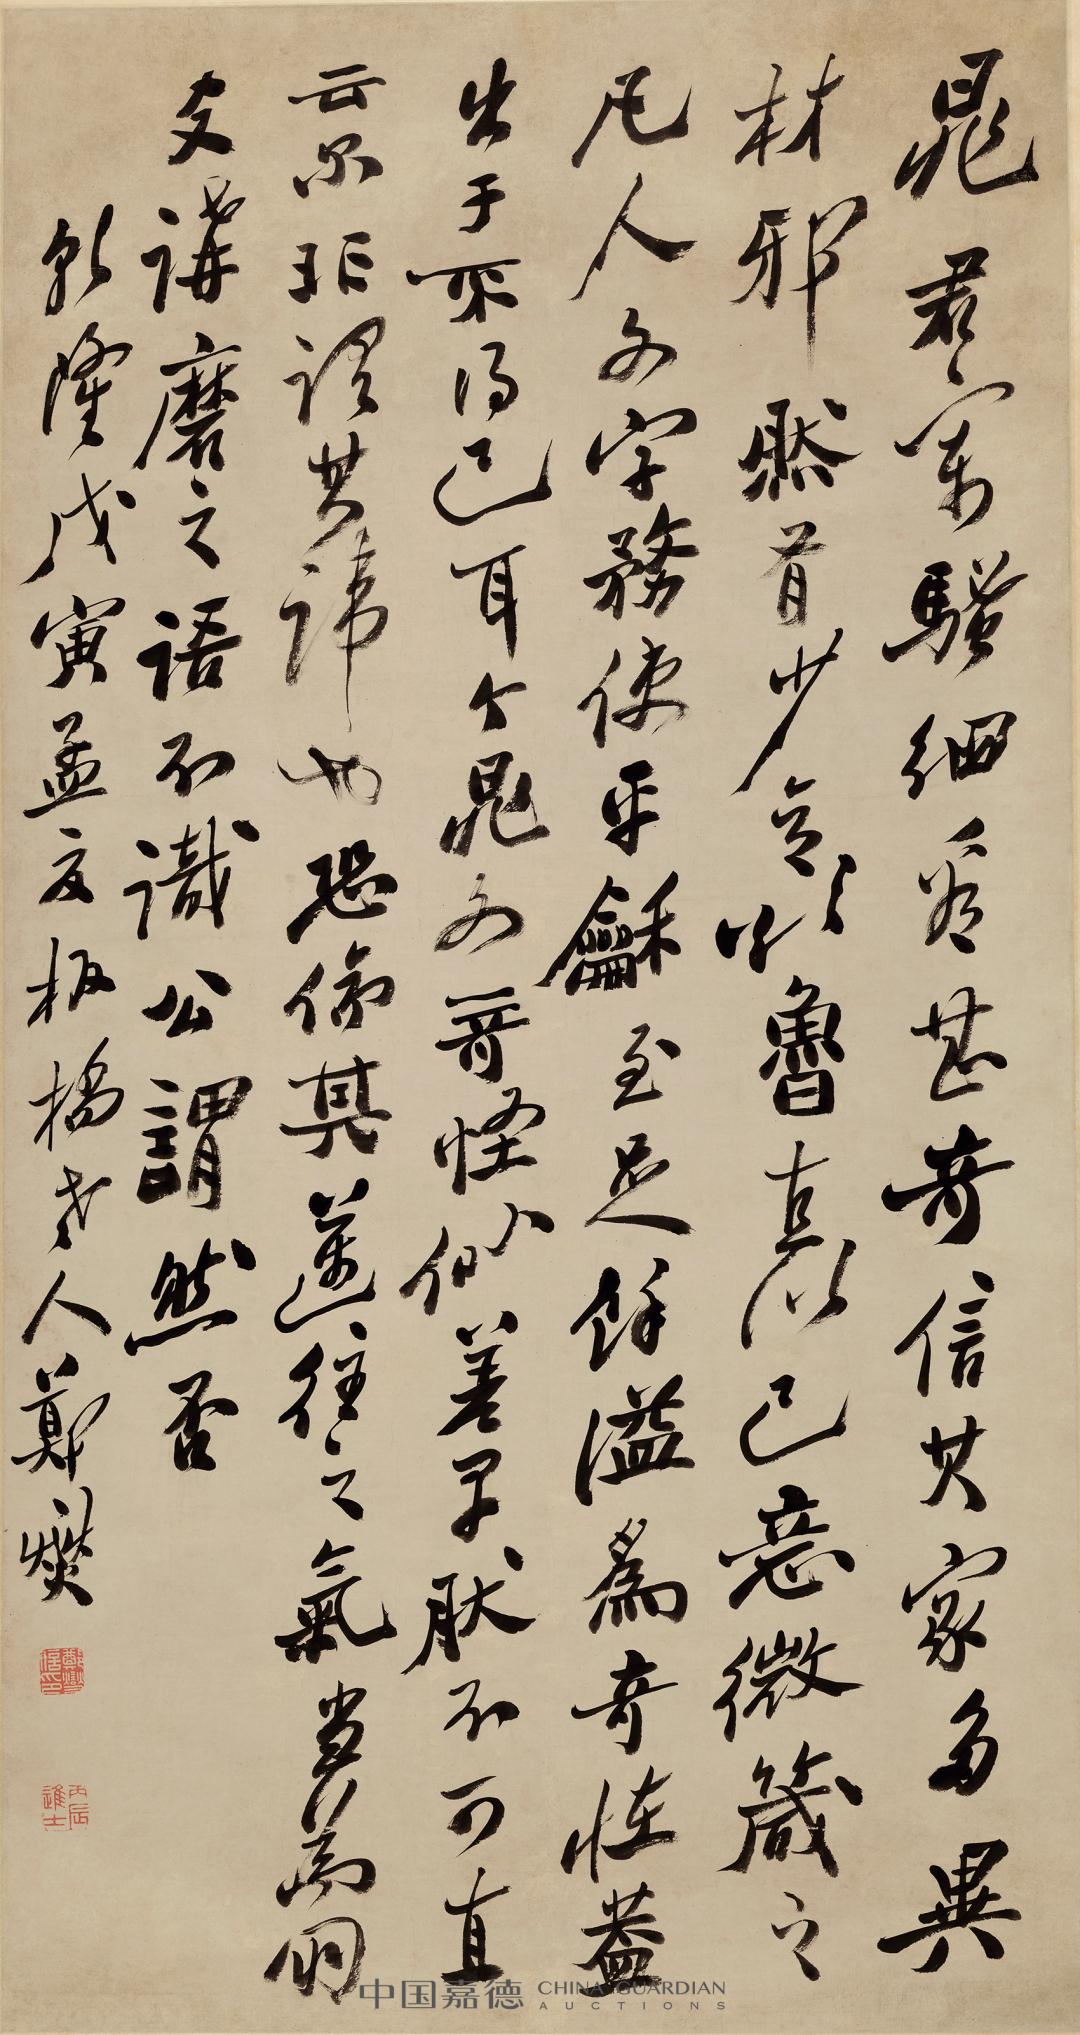 晁君寄騷細看甚奇信其家多異
材邪然有少意欲魯直以己意微箴之
凡人文字務使平龢至足餘溢為奇怪蓋
出于不得已耳今晁文奇怪似差早然不可直
云尔非謂其諱也恐傷其邁往之氣當為朋
友講磨之語不識公謂然否
乾隆戊寅孟夏板橋老人鄭燮
鄭燮信印
丙辰進士
中国嘉德 CHINA GUARDIAN AUCTIONS